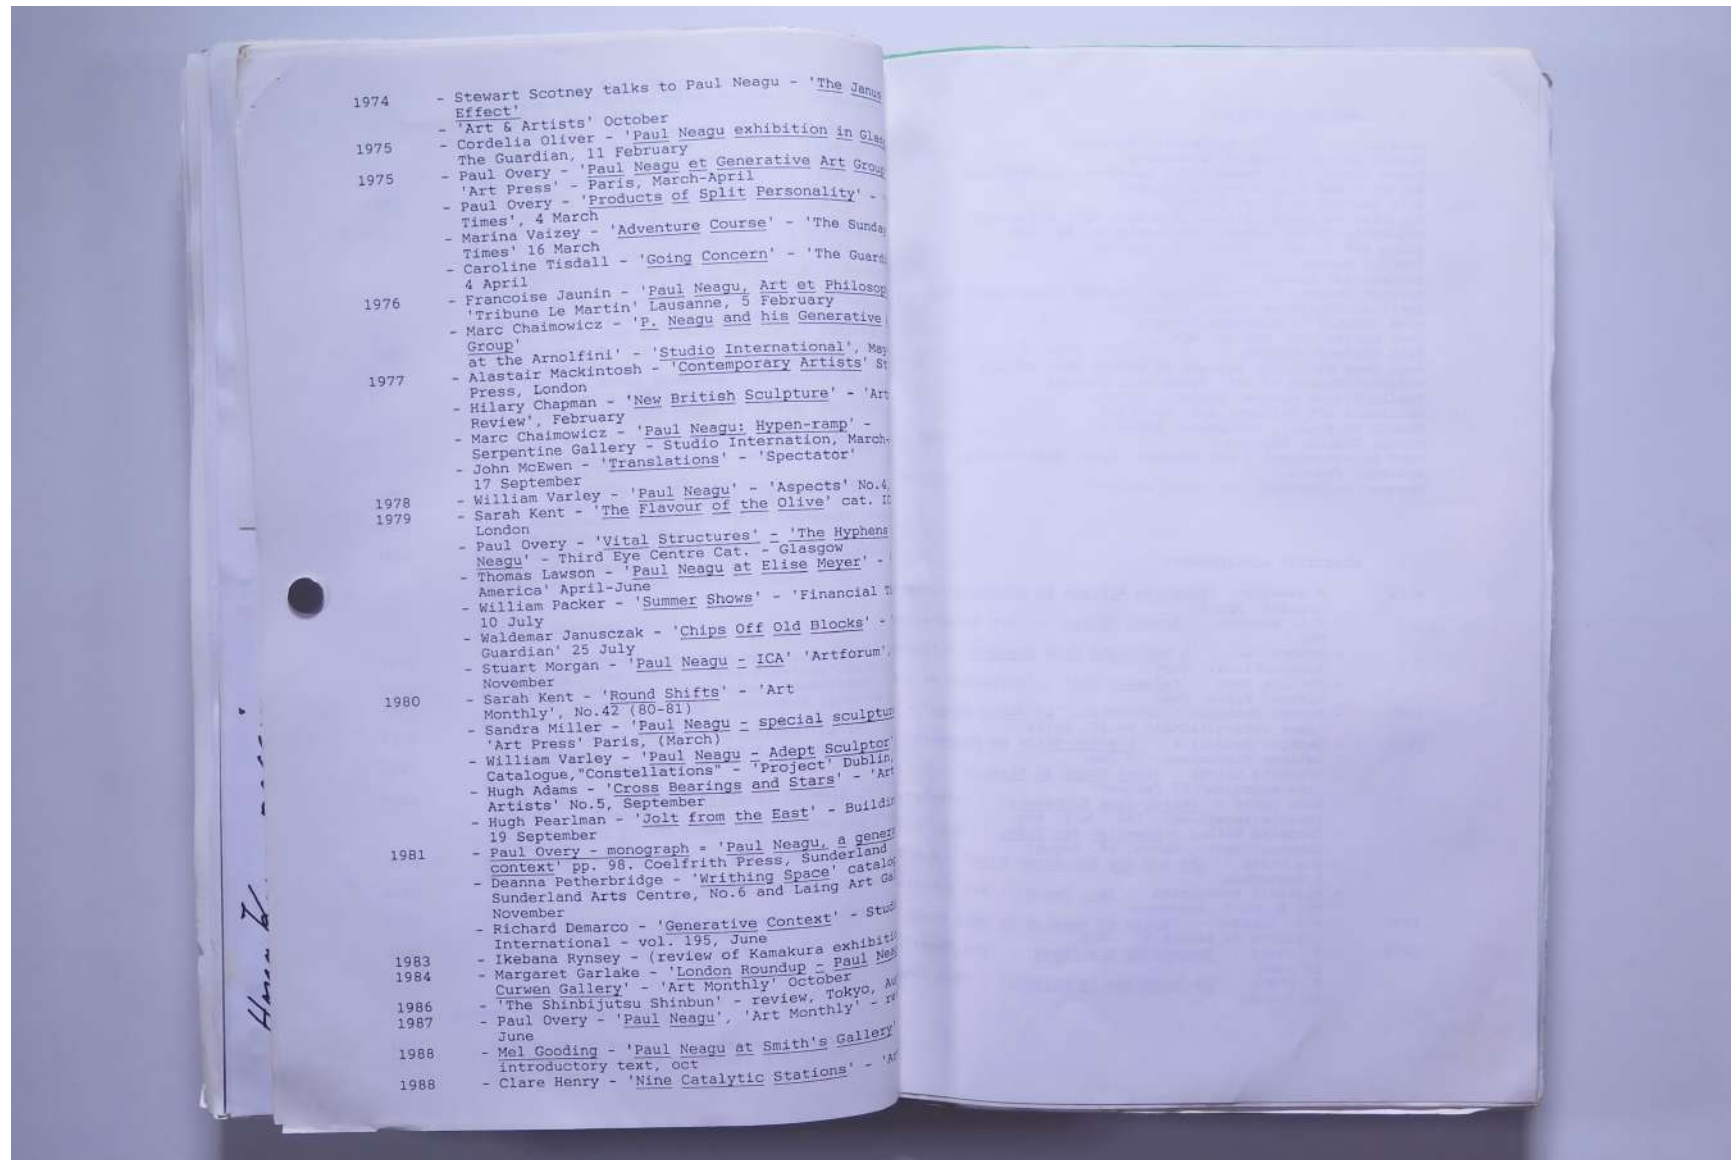 1974 - Stewart Scotney talks to Paul Neagu - 'The Janus
Effect'
- 'Art & Artists' October
1975 - Cordelia Oliver - 'Paul Neagu exhibition in
The Guardian, 11 February
1975 - Paul Overy - 'Paul Neagu et Generative Art Group
'Art Press' - Paris, March-April
- Paul Overy - 'Products of Split Personality' -
Times', 4 March
- Marina Vaizey - 'Adventure Course' - 'The Sunday
Times' 16 March
- Caroline Tisdall - 'Going Concern' - 'The
4 April
1976 - Francoise Jaunin - 'Paul Neagu, Art et
'Tribune Le Martin' Lausanne, 5 February
- Marc Chaimowicz - 'P. Neagu and his Generative
Group'
at the Arnolfini' - 'Studio International', May
1977 - Alastair Mackintosh - 'Contemporary Artists'
Press, London
- Hilary Chapman - 'New British Sculpture' - 'Art
Review', February
- Marc Chaimowicz - 'Paul Neagu: Hypen-ramp' -
Serpentine Gallery - Studio Internation, March-
- John McEwen - 'Translations' - 'Spectator'
17 September
1978 - William Varley - 'Paul Neagu' - 'Aspects' No.4
1979 - Sarah Kent - 'The Flavour of the Olive' cat.
London
- Paul Overy - 'Vital Structures' - 'The Hyphens
Neagu' - Third Eye Centre Cat. - Glasgow
- Thomas Lawson - 'Paul Neagu at Elise Meyer' -
America' April-June
- William Packer - 'Summer Shows' - 'Financial
10 July
- Waldemar Janusczak - 'Chips Off Old Blocks' -
Guardian' 25 July
- Stuart Morgan - 'Paul Neagu - ICA' 'Artforum',
November
1980 - Sarah Kent - 'Round Shifts' - 'Art
Monthly', No.42 (80-81)
- Sandra Miller - 'Paul Neagu - special
'Art Press' Paris, (March)
- William Varley - 'Paul Neagu - Adept Sculptor'
Catalogue,"Constellations" - 'Project' Dublin,
- Hugh Adams - 'Cross Bearings and Stars' - 'Art
Artists' No.5, September
- Hugh Pearlman - 'Jolt from the East' -
19 September
1981 - Paul Overy - monograph = 'Paul Neagu, a
context' pp. 98. Coelfrith Press, Sunderland
- Deanna Petherbridge - 'Writhing Space'
Sunderland Arts Centre, No.6 and Laing Art
November
- Richard Demarco - 'Generative Context' -
International - vol. 195, June
1983 - Ikebana Rynsey - (review of Kamakura
1984 - Margaret Garlake - 'London Roundup - Paul
Curwen Gallery' - 'Art Monthly' October
1986 - 'The Shinbijutsu Shinbun' - review, Tokyo,
1987 - Paul Overy - 'Paul Neagu', 'Art Monthly' -
June
1988 - Mel Gooding - 'Paul Neagu at Smith's Gallery'
introductory text, oct
1988 - Clare Henry - 'Nine Catalytic Stations' -